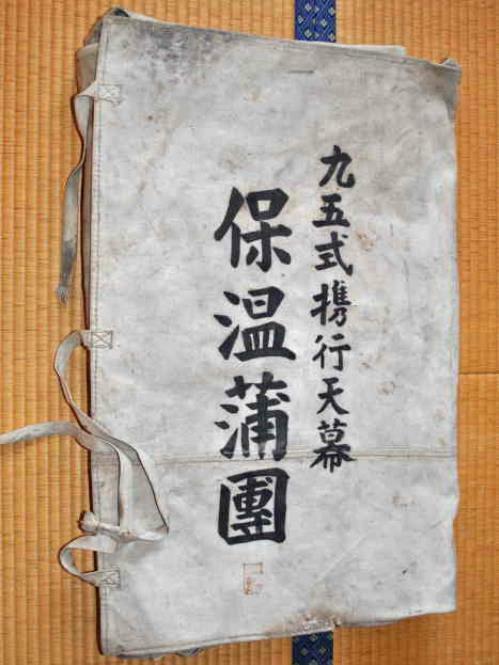 九五式携行天幕
保温蒲團